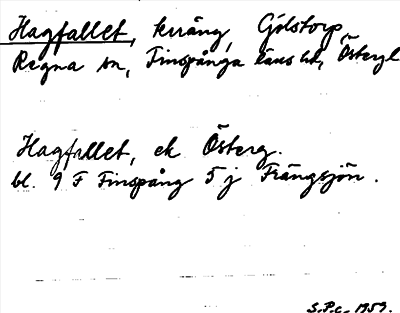 Hagfallet, kräng, Gölstorp,
Regna sn, Finspånga läns hd, Östergl
Hagfallet, ek Österg.
bl. 9 F Finspång 5 j Trängsjön.
S.P.c. 1959.